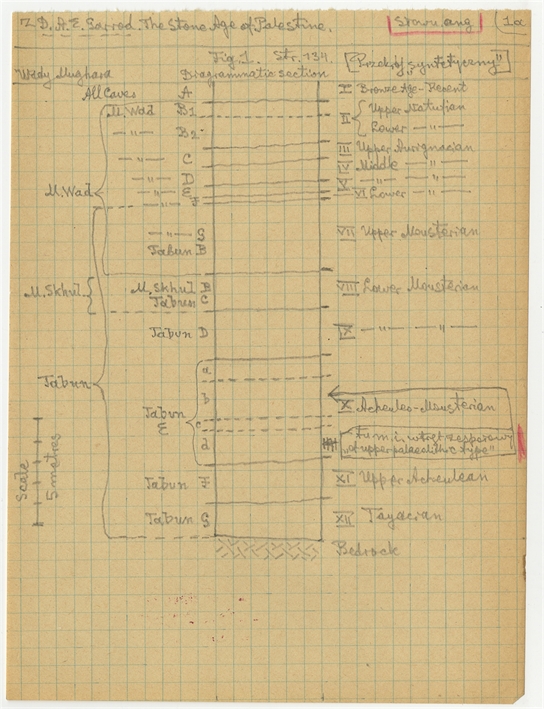 Z D. A. E. Garrod. The Stone Age of Palestine.
1a
Fig. 1. Str. 134.
["Przekrój syntetyczny"]
Wady Mughara
Diagrammatic section
All Caves A
I Bronze Age-Recent
M. Wad B1
II { Upper Natufian
—"— B2
Lower —"—
III Upper Aurignacian
—"— C
IV Middle —"— —"—
—"— D
V —"— —"— —"—
—"— E
VI Lower —"—
—"— F
M. Wad
—"— G
VII Upper Mousterian
Tabun B
M. Skhul.
M. Skhul B
VIII Lower Mousterian
Tabun C
Tabun D
IX —"— —"— —"—
a
b
Tabun
X Acheuleo-Mousterian
Tabun
E
c
d
"of upper paleolithic type"
Scale
5 metres
Tabun F
XI Upper Acheulean
Tabun G
XII Tayacian
Bedrock